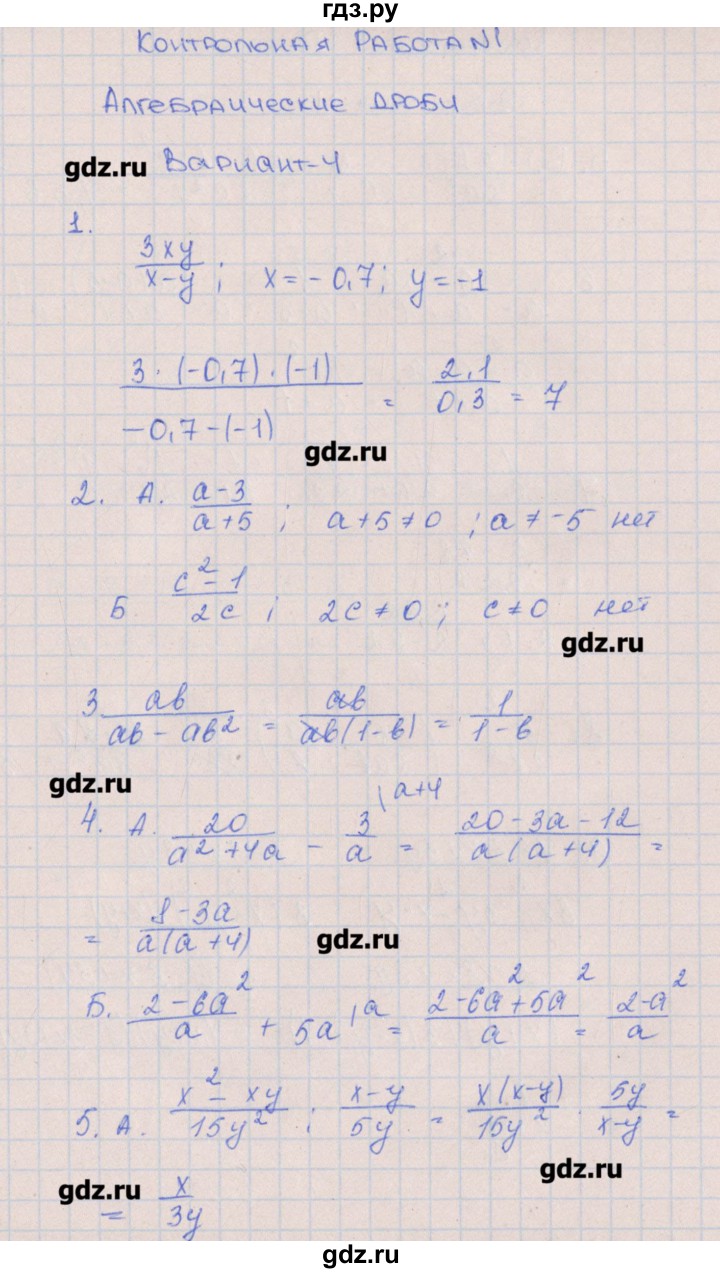 гдз.ру
Контрольная работа N1
Алгебраические дроби
gdz.ru Вариант-4
1.
3xy/(x-y) ; x = -0,7; y = -1
3·(-0,7)·(-1)/(-0,7-(-1)) = 2,1/0,3 = 7
gdz.ru
2. А. (a-3)/(a+5) ; a+5≠0 ; a≠-5 нет
Б (c²-1)/2c ; 2c≠0 ; c≠0 нет
gdz.ru
3 ab/(ab-ab²) = ab/(ab(1-b)) = 1/(1-b)
gdz.ru
4. А. 20/(a²+4a) - 3/a |a+4 = (20-3a-12)/(a(a+4)) =
= (8-3a)/(a(a+4))
gdz.ru
Б. (2-6a²)/a + 5a |a = (2-6a²+5a²)/a = (2-a²)/a
5. А. (x²-xy)/15y² : (x-y)/5y = x(x-y)/15y² · 5y/(x-y) =
gdz.ru
gdz.ru = x/3y
gdz.ru